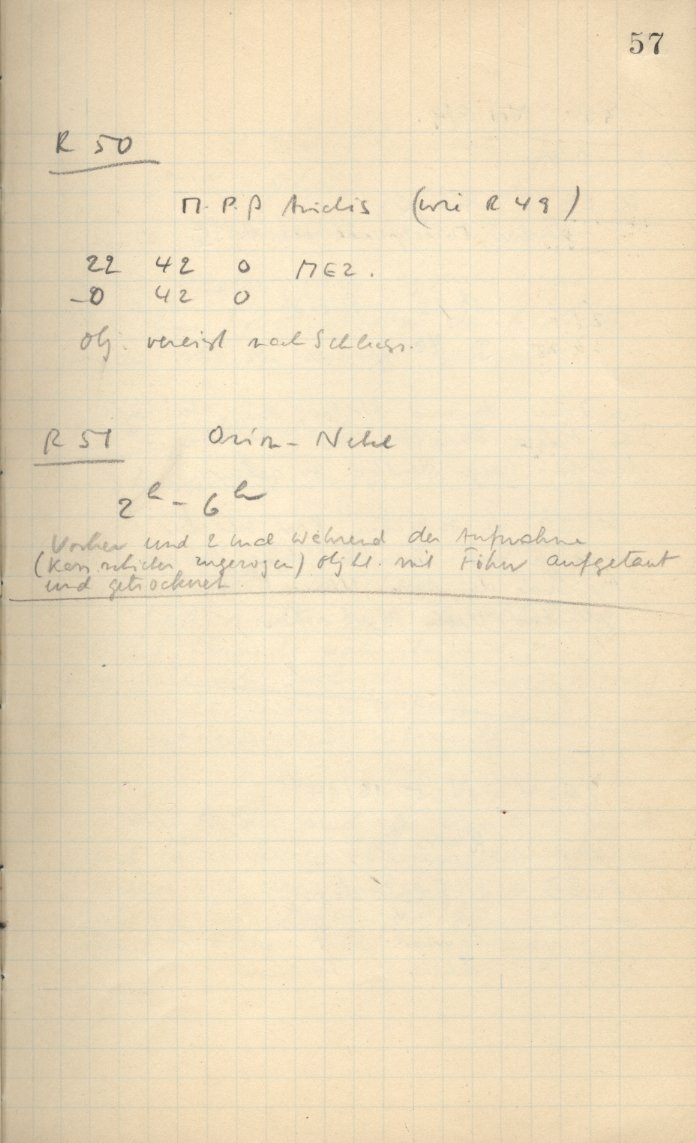 57
R 50
M. P. β Arietis (wie R 49)
22 42 0 MEZ.
-0 42 0
Obj. vereist nach Schluss.
R 51 Orion-Nebel
2h - 6h
Vorher und 2 mal während der Aufnahme
(Kass. zugezogen) Obj. mit Föhn aufgetaut
und getrocknet